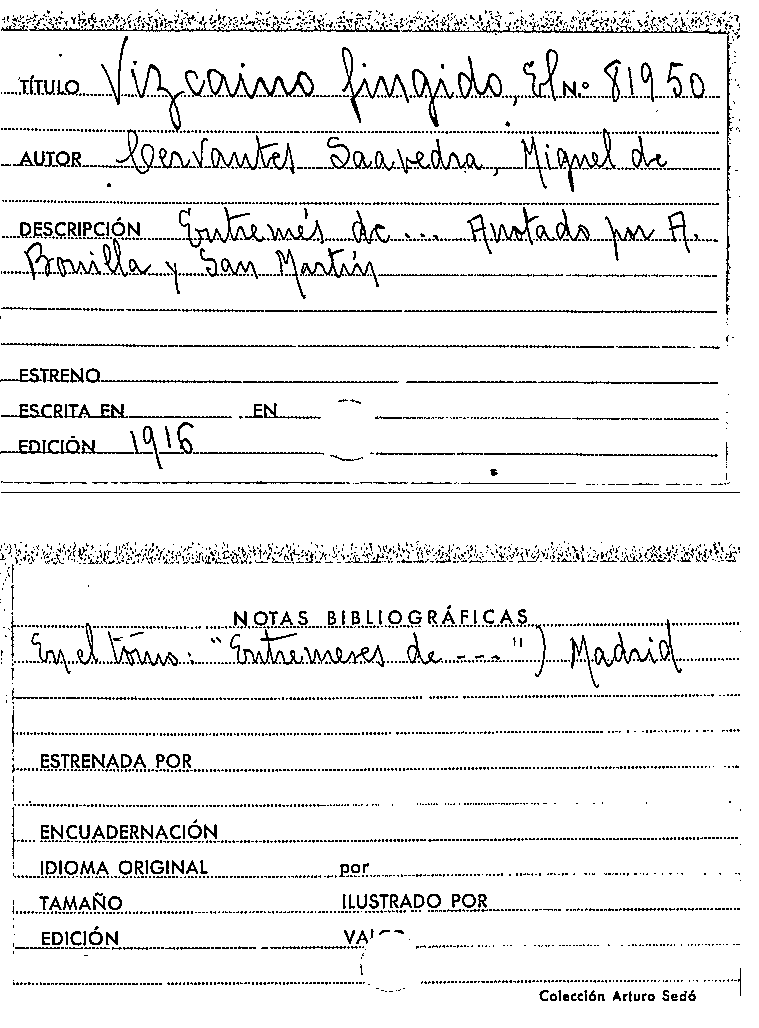 TÍTULO Vizcaino fingido, El N.º 81950
AUTOR Cervantes Saavedra, Miguel de
DESCRIPCIÓN Entremés de ... Anotado por A.
Bonilla y San Martín
ESTRENO
ESCRITA EN EN
EDICIÓN 1916
NOTAS BIBLIOGRÁFICAS
En el tomo: "Entremeses de ---") Madrid
ESTRENADA POR
ENCUADERNACIÓN
IDIOMA ORIGINAL por
TAMAÑO ILUSTRADO POR
EDICIÓN
Colección Arturo Sedó